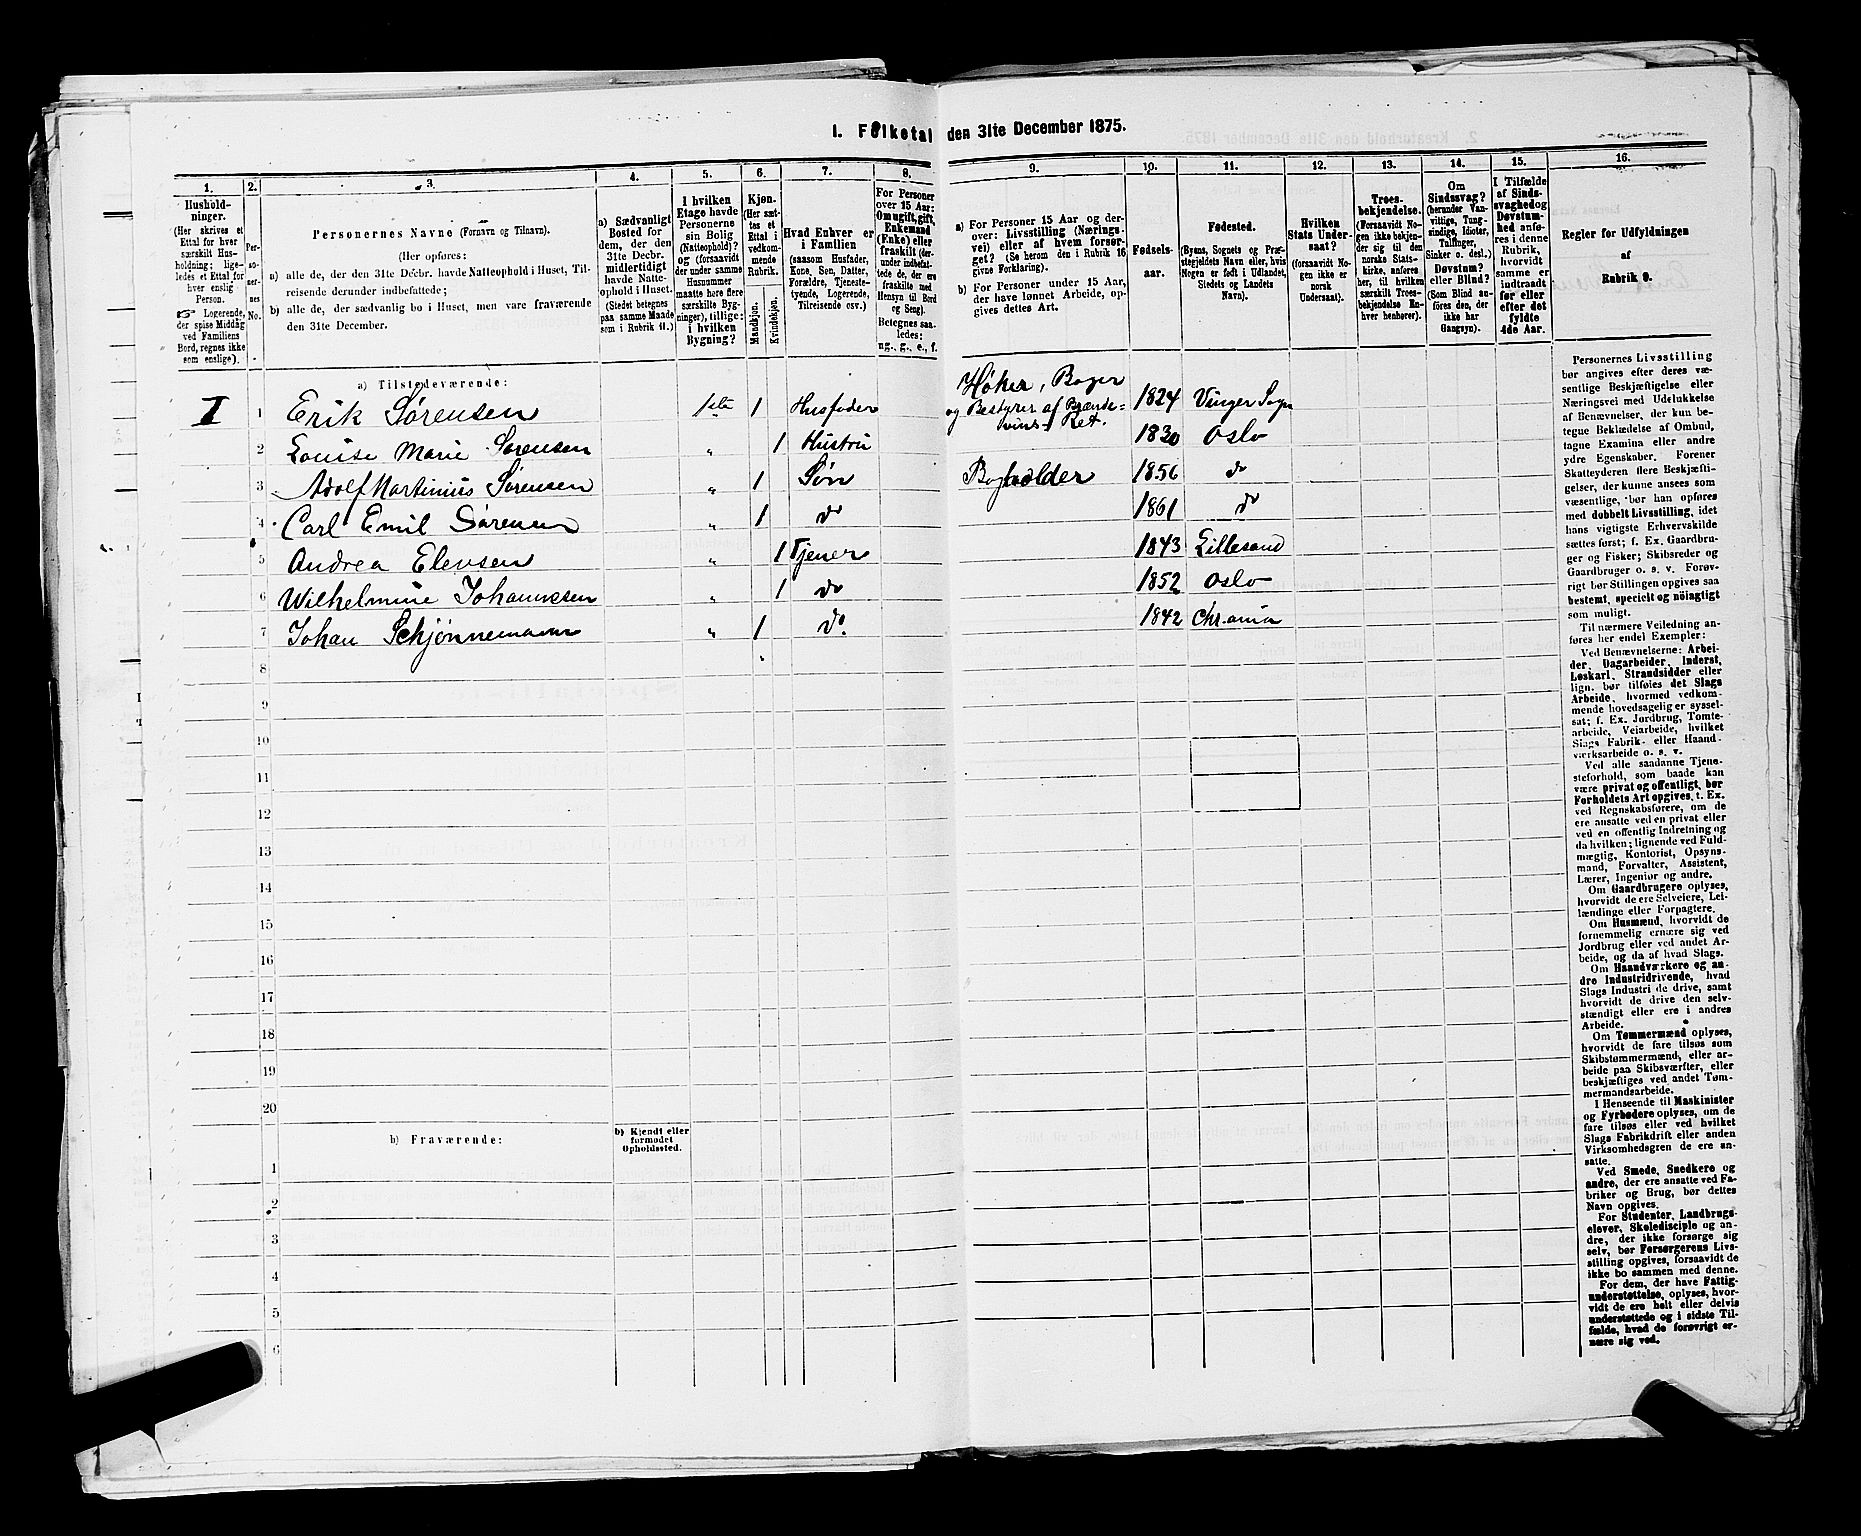 1. Folketal den 31te December 1875.
1. 2. 3. 4. 5. 6. 7. 8. 9. 10. 11. 12. 13. 14. 15. 16.
Hushold-
ninger.
(Her skrives et
Ettal for hver
særskilt Hus-
holdning; lige-
ledes et Ettal
for hver enslig
Person.
☞ Logerende,
der spise Middag
ved Familiens
Bord, regnes ikke
som enslige).
Per-
so-
ner-
nes
No.
Personernes Navne (Fornavn og Tilnavn).
(Her opføres:
a) alle de, der den 31te Decbr. havde Natteophold i Huset, Til-
reisende derunder indbefattede;
b) alle de, der sædvanlig bo i Huset, men vare fraværende
den 31te December.
a) Sædvanligt
Bosted for
dem, der den
31te Decbr.
midlertidigt
havde Natte-
ophold i Huset.
(Stedet betegnes
paa samme Maade
som i Rubrik 11.)
I hvilken
Etage havde
Personerne
sin Bolig
(Natteophold)?
og (forsaavidt
der under samme
Husnummer
maatte høre flere
særskilte Byg-
ninger), tillige:
i hvilken
Bygning?
Kjøn.
(Her sæt-
tes et
Ettal i
vedkom-
mende
Rubrik.
Mandkjøn.
Kvindekjøn.
Hvad Enhver er
i Familien
(saasom Husfader,
Kone, Søn, Datter,
Forældre, Tjeneste-
tyende, Logerende,
Tilreisende osv.)
For Personer
over 15 Aar:
Om ugift, gift,
Enkemand
(Enke) eller
fraskilt (der-
under indbefat-
tede de, der ere
fraskilte med
Hensyn til Bord
og Seng).
Betegnes saa-
ledes:
ug., g., e., f.
a) For Personer 15 Aar og der-
over: Livsstilling (Nærings-
vei) eller af hvem forsør-
get? (Se herom den i Rubrik 16
givne Forklaring).
b) For Personer under 15 Aar,
der have lønnet Arbeide, op-
gives dettes Art.
Fødsels-
aar.
Fødested.
(Byens, Sognets og Præ-
stegjeldets Navn eller, hvis
Nogen er født i Udlandet,
Stedets og Landets
Navn).
Hvilken
Stats Under-
saat?
(forsaavidt No-
gen ikke er
norsk
Undersaat).
Troes-
bekjendelse.
(Forsaavidt No-
gen ikke bekjen-
der sig til den
norske Stats-
kirke, anføres
her, til hvilken
særskilt Troes-
bekjendelse En-
hver henhører).
Om
Sindssvag?
(herunder Van-
vittige, Tung-
sindige, Idioter,
Tullinger,
Sinker o. desl.)
Døvstum?
eller Blind?
(Som Blind an-
føres den, der
ikke har
Gangsyn).
I Tilfælde
af Sinds-
svaghed og
Døvstum-
hed anfø-
res i denne
Rubrik,
hvorvidt
samme er
indtraadt
før eller
efter det
fyldte
4de Aar.
Regler for Udfyldningen
af
Rubrik 9.
a) Tilstedeværende:
I 1 Erik Sørensen 1ste 1 Husfader Høker, Bager og Bestyrer af Brænde=vins=Ret. 1824 Vinger Sogn
2 Louise Marie Sørensen „ 1 Hustru 1830 Oslo
3 Adolf Martinius Sørensen „ 1 Søn Bogholder 1856 do
4 Carl Emil Sørensen „ 1 do 1861 do
5 Andrea Elevsen „ 1 Tjener 1843 Lillesand
6 Wilhelmine Johannesen „ 1 do 1852 Oslo
7 Johan Schjønnemann „ 1 do. 1842 Chr.ania
8
9
10
11
12
13
14
15
16
17
18
19
20
b) Fraværende:
b) Kjendt eller
formodet
Opholdssted.
1
2
3
4
5
6
Personernes Livsstilling
bør angives efter deres væ-
sentlige Beskjæftigelse eller
Næringsvei med Udelukkelse
af Benævnelser, der kun be-
tegne Beklædelse af Ombud,
tagne Examina eller andre
ydre Egenskaber. Forener
Skatteyderen flere Beskjæfti-
gelser, der kunne ansees som
væsentlige, bør han opføres
med dobbelt Livsstilling, idet
hans vigtigste Erhvervskilde
sættes først; f. Ex. Gaardbru-
ger og Fisker; Skibsreder og
Gaardbruger o. s. v. Forøv-
rigt bør Stillingen opgives saa
bestemt, specielt og nöiagtigt
som muligt.
Til nærmere Veiledning an-
føres her endel Exempler:
Ved Benævnelserne: Arbei-
der, Dagarbeider, Inderst,
Løskarl, Strandsidder eller
lign. bør tilføies det Slags
Arbeide, hvormed vedkom-
mende hovedsagelig er syssel-
sat; f. Ex. Jordbrug, Tomte-
arbeide, Veiarbeide, hvilket
Slags Fabrik- eller Haand-
værksarbeide o. s. v.
Ved alle saadanne Tjene-
steforhold, som baade kan
være privat og offentligt, bør
Forholdets Art opgives, t. Ex.
ved Regnskabsførere, om de
ere ansatte ved en privat eller
ved en offentlig Indretning og
da hvilken; lignende ved Fuld-
mægtig, Kontorist, Opsyns-
mand, Forvalter, Assistent,
Lærer, Ingeniør og andre.
Om Gaardbrugere oplyses,
hvorvidt de ere Selveiere, Lei-
lændinge eller Forpagtere.
Om Husmænd, hvorvidt de
fornemmelig ernære sig ved
Jordbrug eller ved andet Ar-
beide, og da af hvad Slags.
Om Haandværkere og an-
dre Industridrivende, hvad
Slags Industri de drive, samt
hvorvidt de drive den selv-
stændigt eller ere i andres
Arbeide.
Om Tømmermænd oplyses,
hvorvidt de fare tilsøs som
Skibstømmermænd, eller ar-
beide paa Skibsværfter, eller
beskjæftiges ved andet Tøm-
mermandsarbeide.
I Henseende til Maskinister
og Fyrbødere oplyses, om de
fare tilsøs eller ved hvilket
Slags Fabrikdrift eller anden
Virksomhedsgren de ere an-
satte.
Ved Smede, Snedkere og
andre, der ere ansatte ved Fa-
briker og Brug, bør dettes
Navn opgives.
For Studenter, Landbrugs-
elever, Skoledisciple og an-
dre, der ikke forsørge sig
selv, bør Forsørgerens Livs-
stilling opgives, forsaavidt de
ikke bo sammen med denne.
For dem, der have Fattig-
understøttelse, oplyses, hvor-
vidt de ere helt eller delvis
understøttede og i sidste Til-
fælde, hvad de forøvrigt er-
nære sig ved.